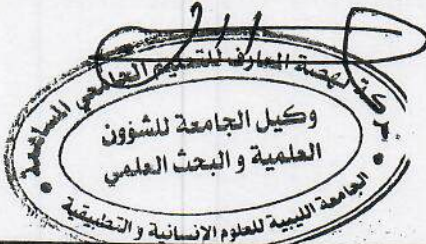 شركة نهضة المعارف للتعليم الجامعي المساهمة
وكيل الجامعة للشؤون
العلمية و البحث العلمي
الجامعة الليبية للعلوم الإنسانية و التطبيقية